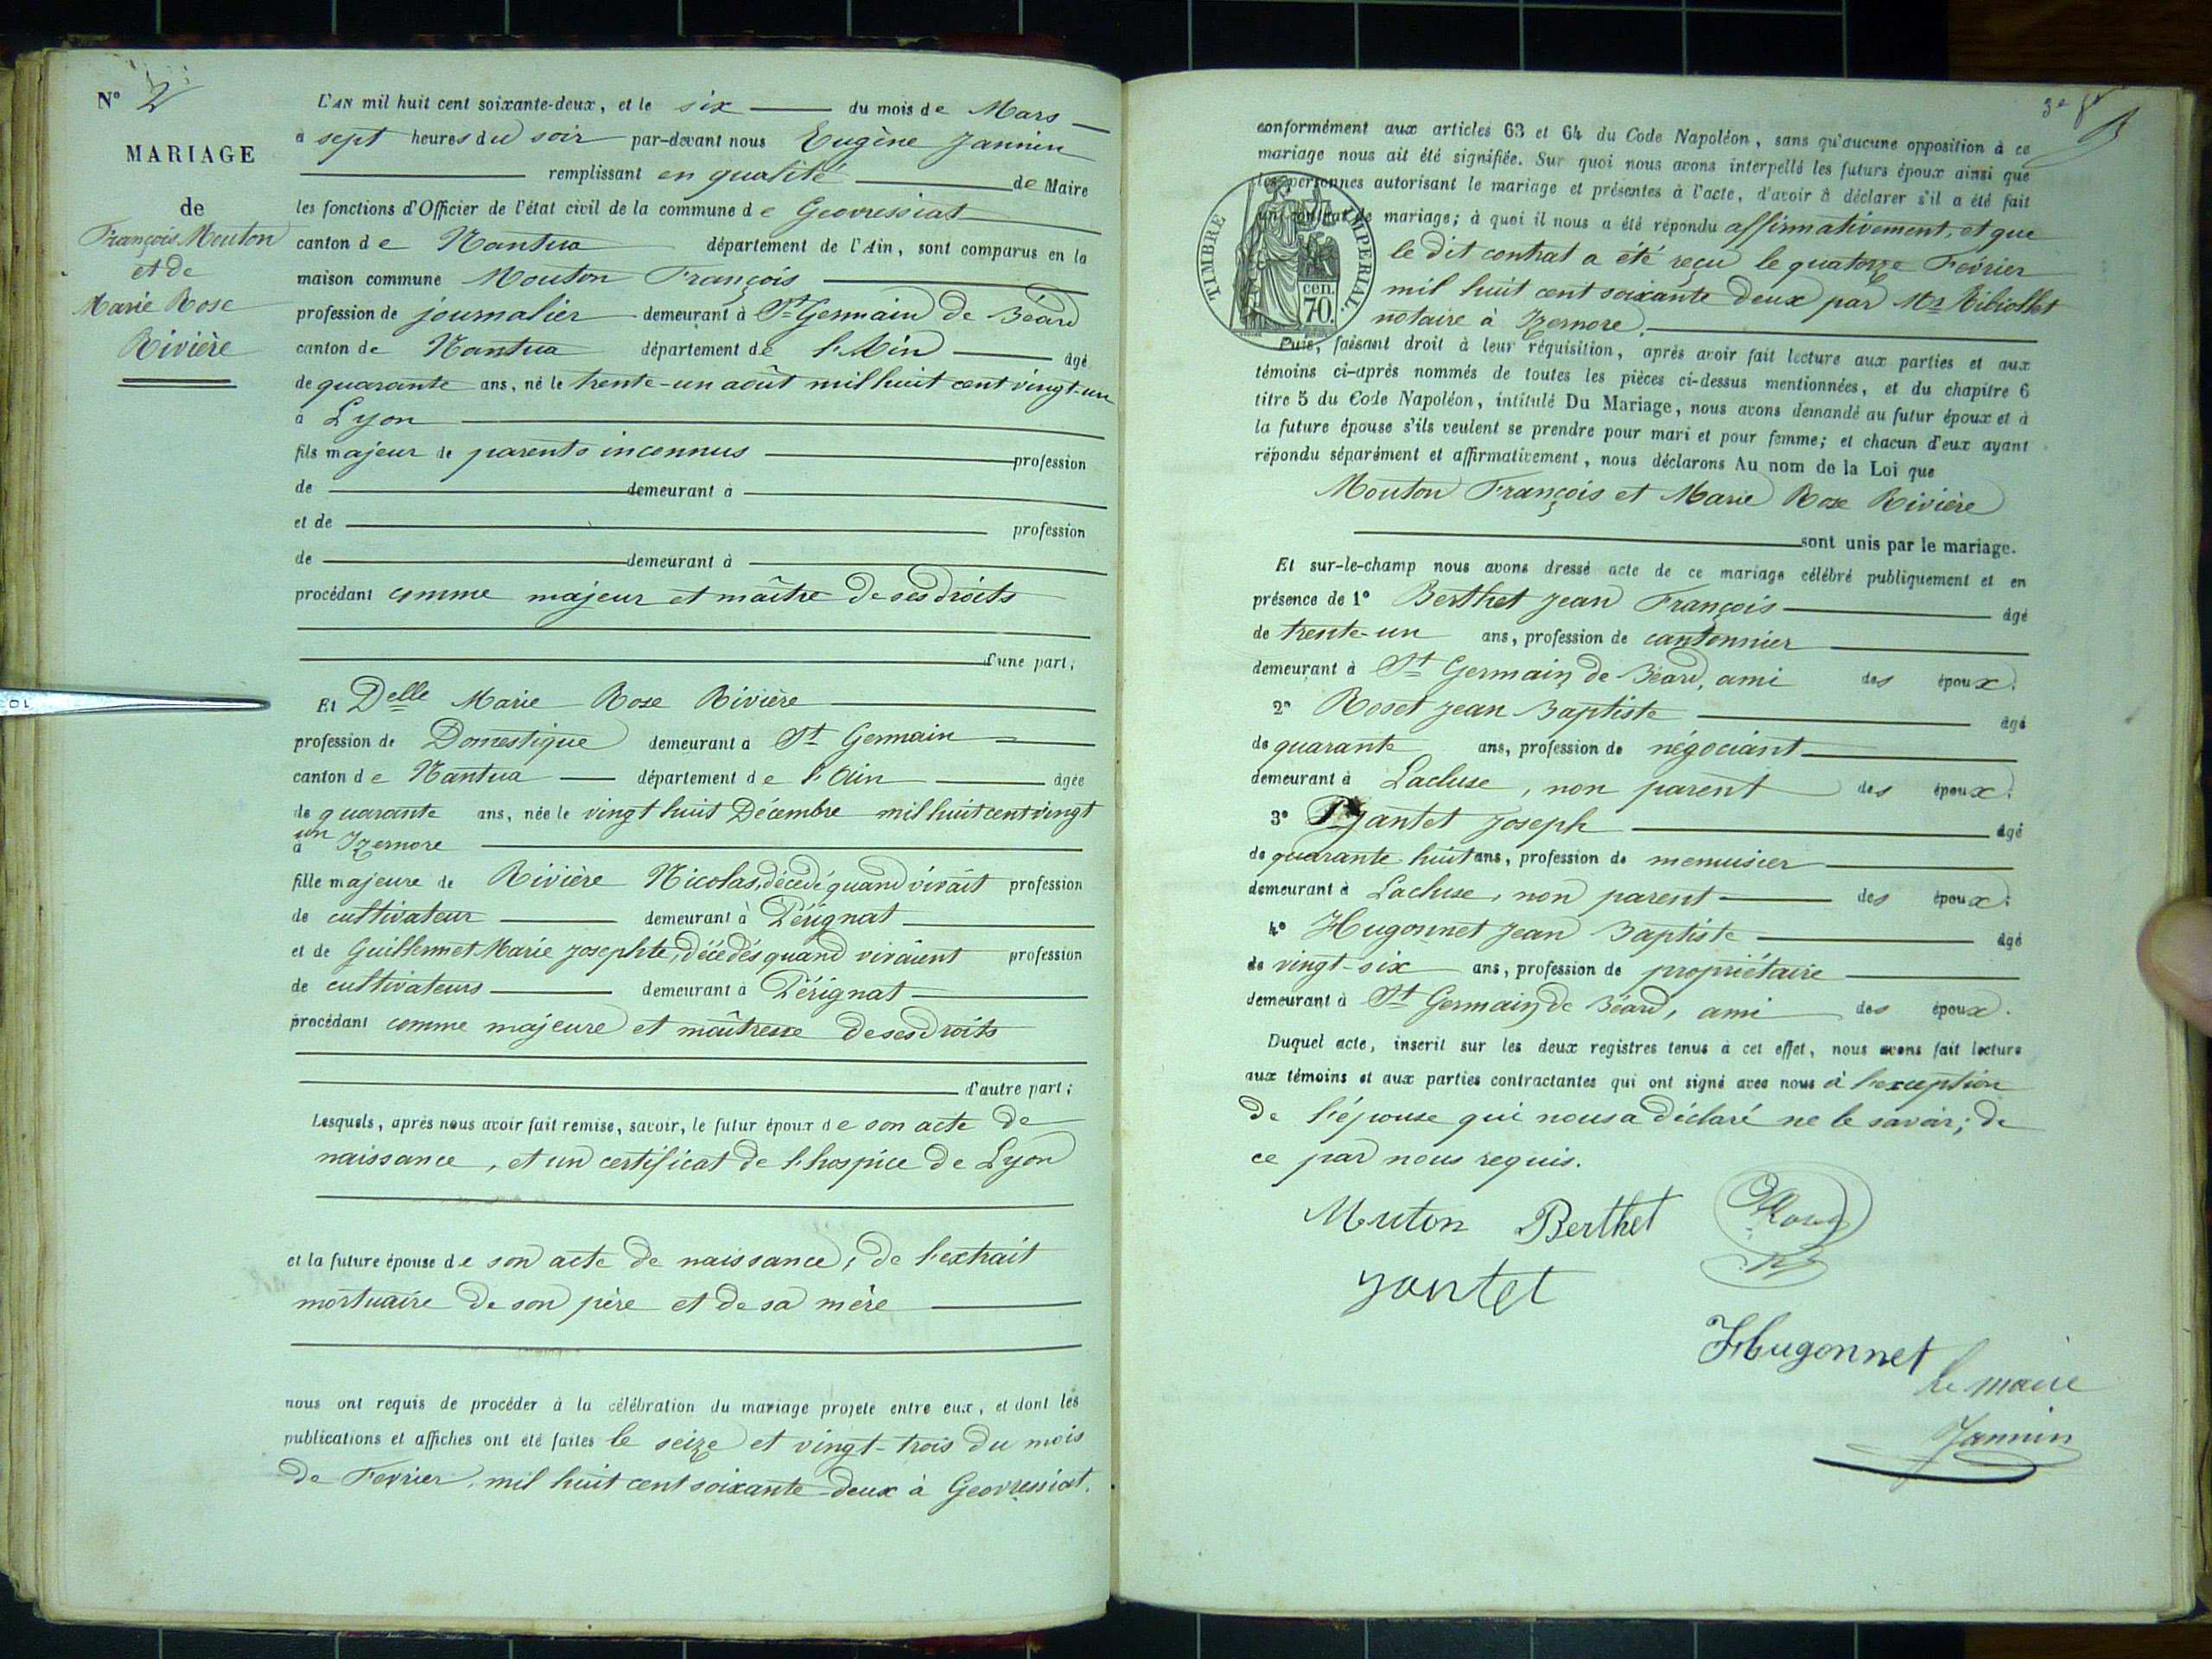 N° 2
MARIAGE
de
François Mouton
et de
Marie Rose
Rivière
L'AN mil huit cent soixante-deux, et le six du mois de Mars
à sept heures du soir par-devant nous Eugène Jannin
remplissant en qualité de Maire
les fonctions d'Officier de l'état civil de la commune de Geovressiat
canton de Nantua département de l'Ain, sont comparus en la
maison commune Mouton François
profession de journalier demeurant à St Germain de Béard
canton de Nantua département de l'Ain âgé
de quarante ans, né le trente-un août mil huit cent vingt-un
à Lyon
fils majeur de parents inconnus profession
de demeurant à
et de profession
de demeurant à
procédant comme majeur et maître de ses droits
d'une part;
Et Delle Marie Rose Rivière
profession de Domestique demeurant à St Germain
canton de Nantua département de l'Ain âgée
de quarante ans, née le vingt huit Décembre mil huit cent vingt
un
à Izernore
fille majeure de Rivière Nicolas, décédé quand vivait profession
de cultivateur demeurant à Pérignat
et de Guillermet Marie Josephte, décédés quand vivaient profession
de cultivateurs demeurant à Pérignat
procédant comme majeure et maîtresse de ses droits
d'autre part;
Lesquels, après nous avoir fait remise, savoir, le futur époux de son acte de
naissance, et un certificat de l'hospice de Lyon
et la future épouse de son acte de naissance; de l'extrait
mortuaire de son père et de sa mère
nous ont requis de procéder à la célébration du mariage projeté entre eux, et dont les
publications et affiches ont été faites le seize et vingt-trois du mois
de Fevrier mil huit cent soixante-deux à Geovressiat.
3e
conformément aux articles 63 et 64 du Code Napoléon, sans qu'aucune opposition à ce
mariage nous ait été signifiée. Sur quoi nous avons interpellé les futurs époux ainsi que
les personnes autorisant le mariage et présentes à l'acte, d'avoir à déclarer s'il a été fait
un contrat de mariage; à quoi il nous a été répondu affirmativement, et que
le dit contrat a été reçu le quatorze Février
mil huit cent soixante deux par Mr Ribiollet
notaire à Izernore.
TIMBRE IMPERIAL
cen.
70.
Puis, faisant droit à leur réquisition, après avoir fait lecture aux parties et aux
témoins ci-après nommés de toutes les pièces ci-dessus mentionnées, et du chapitre 6
titre 5 du Code Napoléon, intitulé Du Mariage, nous avons demandé au futur époux et à
la future épouse s'ils veulent se prendre pour mari et pour femme; et chacun d'eux ayant
répondu séparément et affirmativement, nous déclarons Au nom de la Loi que
Mouton François et Marie Rose Rivière
sont unis par le mariage.
Et sur-le-champ nous avons dressé acte de ce mariage célébré publiquement et en
présence de 1° Berthet Jean François âgé
de trente-un ans, profession de cantonnier
demeurant à St Germain de Béard, ami des époux.
2° Roset Jean Baptiste âgé
de quarante ans, profession de négociant
demeurant à Lacluse, non parent des époux.
3° Jantet Joseph âgé
de quarante huit ans, profession de menuisier
demeurant à Lacluse, non parent des époux.
4° Hugonnet Jean Baptiste âgé
de vingt-six ans, profession de propriétaire
demeurant à St Germain de Béard, ami des époux.
Duquel acte, inscrit sur les deux registres tenus à cet effet, nous avons fait lecture
aux témoins et aux parties contractantes qui ont signé avec nous à l'exception
de l'épouse qui nous a déclaré ne le savoir; de
ce par nous requis.
Muton Berthet
Jantet
Hugonnet
Le maire
Jannin